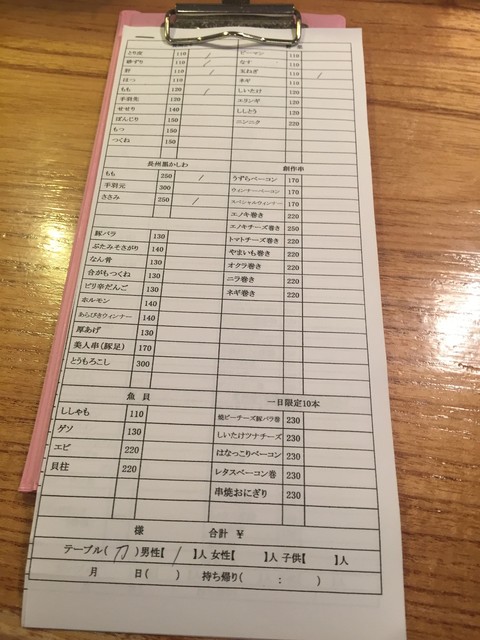 とり皮 110 / ピーマン 110
砂ずり 110 / なす 110
肝 110 / 玉ねぎ 110 /
はつ 110 ネギ 110
もも 120 / しいたけ 120
手羽先 130 エリンギ 110
せせり 140 ししとう 120
ぼんじり 150 ニンニク 220
もつ 150
つくね 150
長州黒かしわ 創作串
もも 250 / うずらベーコン 170
手羽元 300 ウィンナーベーコン 170
ささみ 250 / スペシャルウィンナー 170
エノキ巻き 220
エノキチーズ巻き 250
豚バラ 130 トマトチーズ巻き 220
ぶたみそさがり 140 やまいも巻き 220
なん骨 130 オクラ巻き 220
合がもつくね 130 ニラ巻き 220
ピリ辛だんご 130 ネギ巻き 220
ホルモン 140
あらびきウィンナー 140
厚あげ 130
美人串(豚足) 170
とうもろこし 300
魚貝 一日限定10本
ししゃも 110 焼ピーチーズ豚バラ巻 230
ゲソ 130 しいたけツナチーズ 230
エビ 220 はなっこりベーコン 230
貝柱 220 レタスベーコン巻 230
串焼おにぎり 230
様 合計 ¥
テーブル( カ )男性【 / 】人 女性【 】人 子供【 】人
月 日( ) 持ち帰り( : )